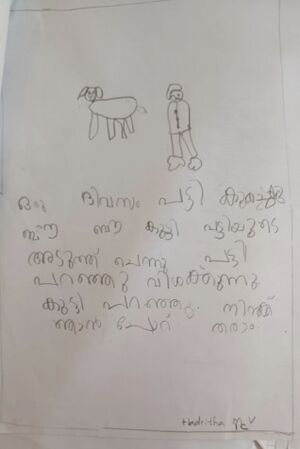 ഒരു ദിവസം പട്ടി കുരച്ചു
ഈ കുട്ടി പട്ടിയുടെ
അടുത്ത് ചെന്നു പട്ടി
പറഞ്ഞു വിശക്കുന്നു
കുട്ടി പറഞ്ഞു. നിനക്ക്
ഞാൻ ചോറ് തരാം.
Hadritha